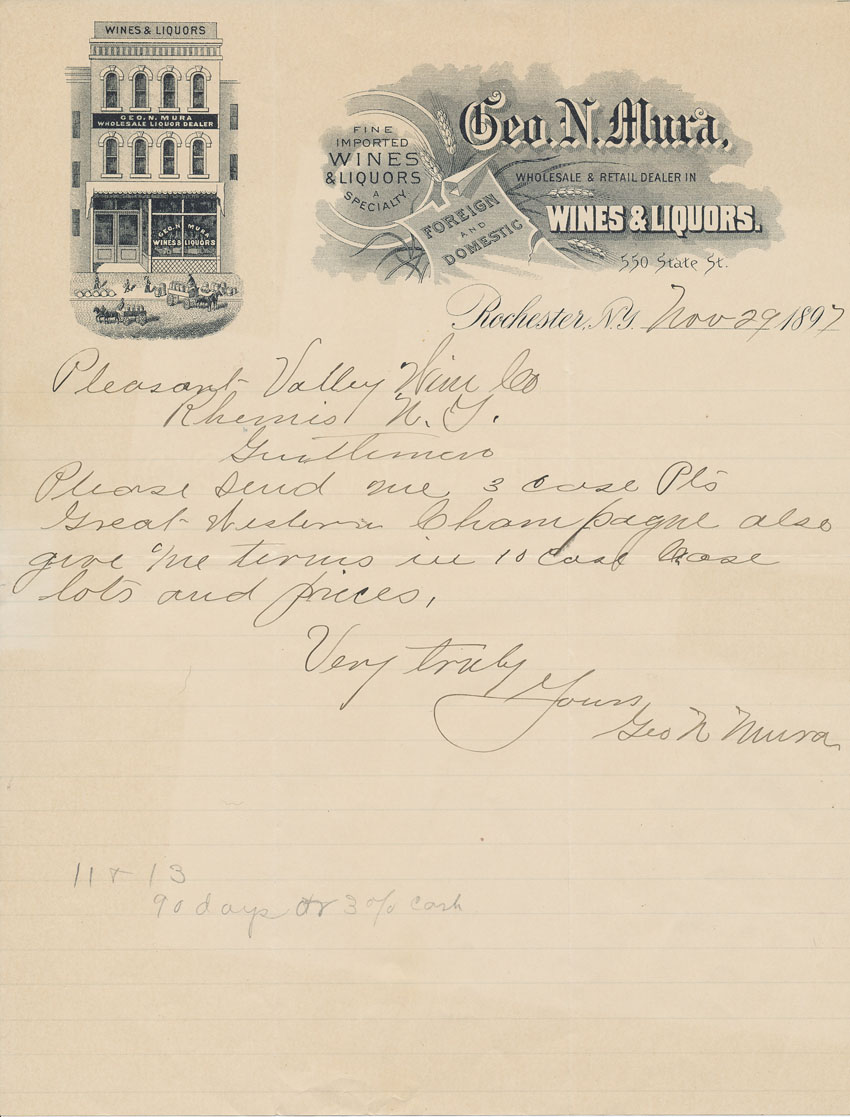 WINES & LIQUORS
GEO. N. MURA
WHOLESALE LIQUOR DEALER
GEO. N. MURA
WINES & LIQUORS
FINE
IMPORTED
WINES
& LIQUORS
A
SPECIALTY
FOREIGN
AND
DOMESTIC
Geo. N. Mura,
WHOLESALE & RETAIL DEALER IN
WINES & LIQUORS.
550 State St.
Rochester, N.Y. Nov 29 1897
Pleasant Valley Wine Co
Rhemis N. Y.
Gentlemen
Please send me 3 case Pts
Great Western Champagne also
give me terms in 10 case case
lots and prices,
Very truly
Yours
Geo N Mura
11 & 13
90 days or 3% cash